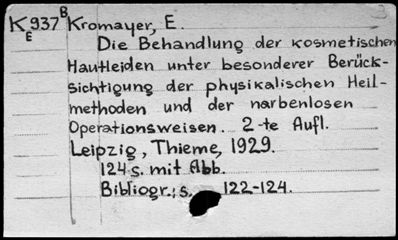 K 937 B Kromayer, E.
E
Die Behandlung der kosmetischen
Hautleiden unter besonderer Berück-
sichtigung der physikalischen Heil-
methoden und der narbenlosen
Operationsweisen. 2-te Aufl.
Leipzig, Thieme, 1929.
124 s. mit Abb.
Bibliogr.: s. 122-124.